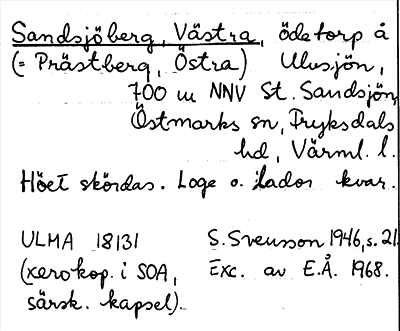 Sandsjöberg, Västra, ödetorp å
(= Prästberg, Östra) Ulusjön,
700 m NNV St. Sandsjön,
Östmarks sn, Fryksdals
hd, Värml. l.
Höet skördas. Loge o. lador kvar.
ULMA 18131 S. Svensson 1946, s. 21.
(xerokop. i SOA, Exc. av E.Å. 1968.
särsk. kapsel).